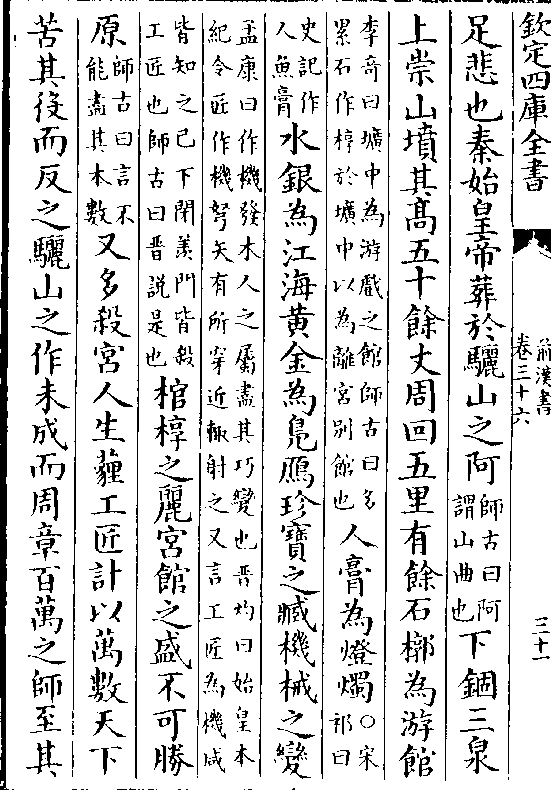 欽定四庫全書
前漢書
卷三十六
三十一
足悲也秦始皇帝葬於驪山之阿師古曰阿謂山曲也下錮三泉
上崇山墳其髙五十餘丈周回五里有餘石槨為游館
李竒曰壙中為游戲之館師古曰多累石作椁於壙中以為離宮别館也人膏為燈燭○宋祁曰
史記作人魚膏水銀為江海黄金為鳬鴈珍寶之臧機械之變
孟康曰作機發木人之屬盡其巧變也晋灼曰始皇本紀令匠作機弩矢有所穿近輙射之又言工匠為機咸
皆知之已下閉羡門皆殺工匠也師古曰晋説是也棺椁之麗宮館之盛不可勝
原師古曰言不能盡其本數又多殺宮人生薶工匠計以萬數天下
苦其役而反之驪山之作未成而周章百萬之師至其